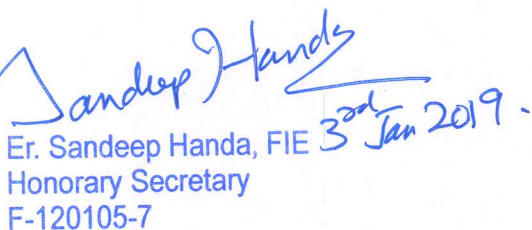 Sandeep Handa
Er. Sandeep Handa, FIE 3rd Jan 2019.
Honorary Secretary
F-120105-7